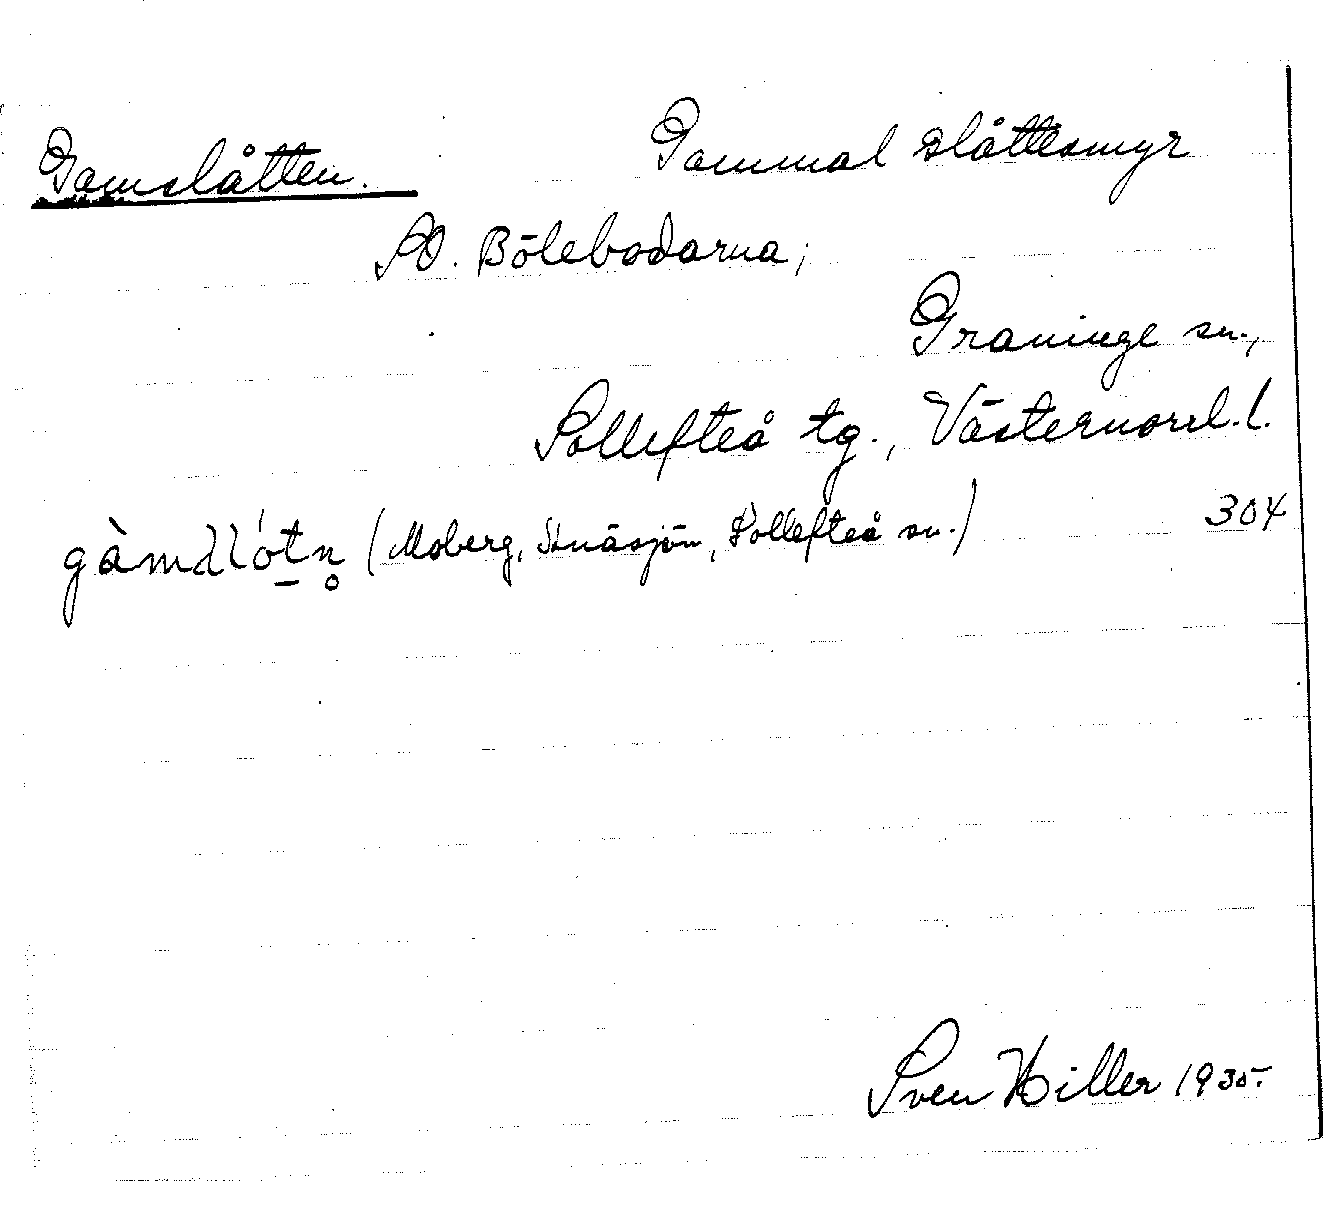 Gamslåtten. Gammal slåttesmyr
SO. Bölebodarna;
Graninge sn.,
Sollefteå tg., Västernorrl. l.
304
gàmslótn̥ (Moberg, Sollefteå sn.)
Sven Hiller 1935.